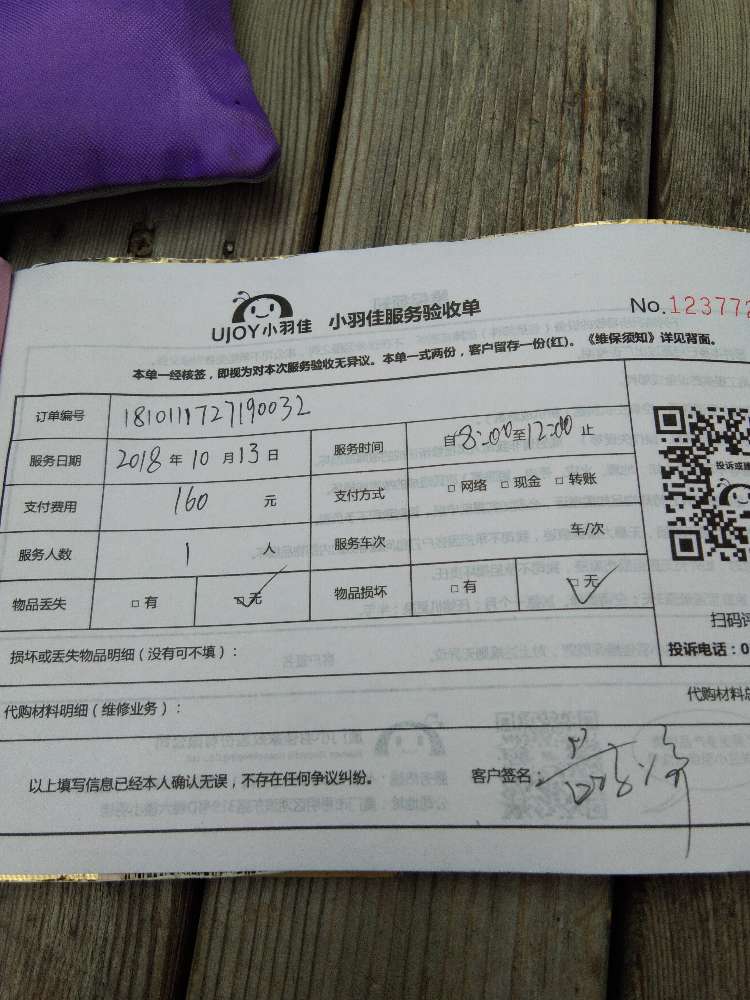 UJOY小羽佳 小羽佳服务验收单 No.123772
本单一经核签，即视为对本次服务验收无异议。本单一式两份，客户留存一份(红)。《维保须知》详见背面。
订单编号 1810111727190032
服务日期 2018 年 10 月 13 日 服务时间 自 8:00 至 12:00 止
支付费用 160 元 支付方式 □ 网络 □ 现金 □ 转账
服务人数 1 人 服务车次 车/次
物品丢失 □ 有 □ 无 物品损坏 □ 有 □ 无
投诉或
扫码评
投诉电话：0
损坏或丢失物品明细（没有可不填）：
代购材料明细（维修业务）： 代购材料总
以上填写信息已经本人确认无误，不存在任何争议纠纷。 客户签名：